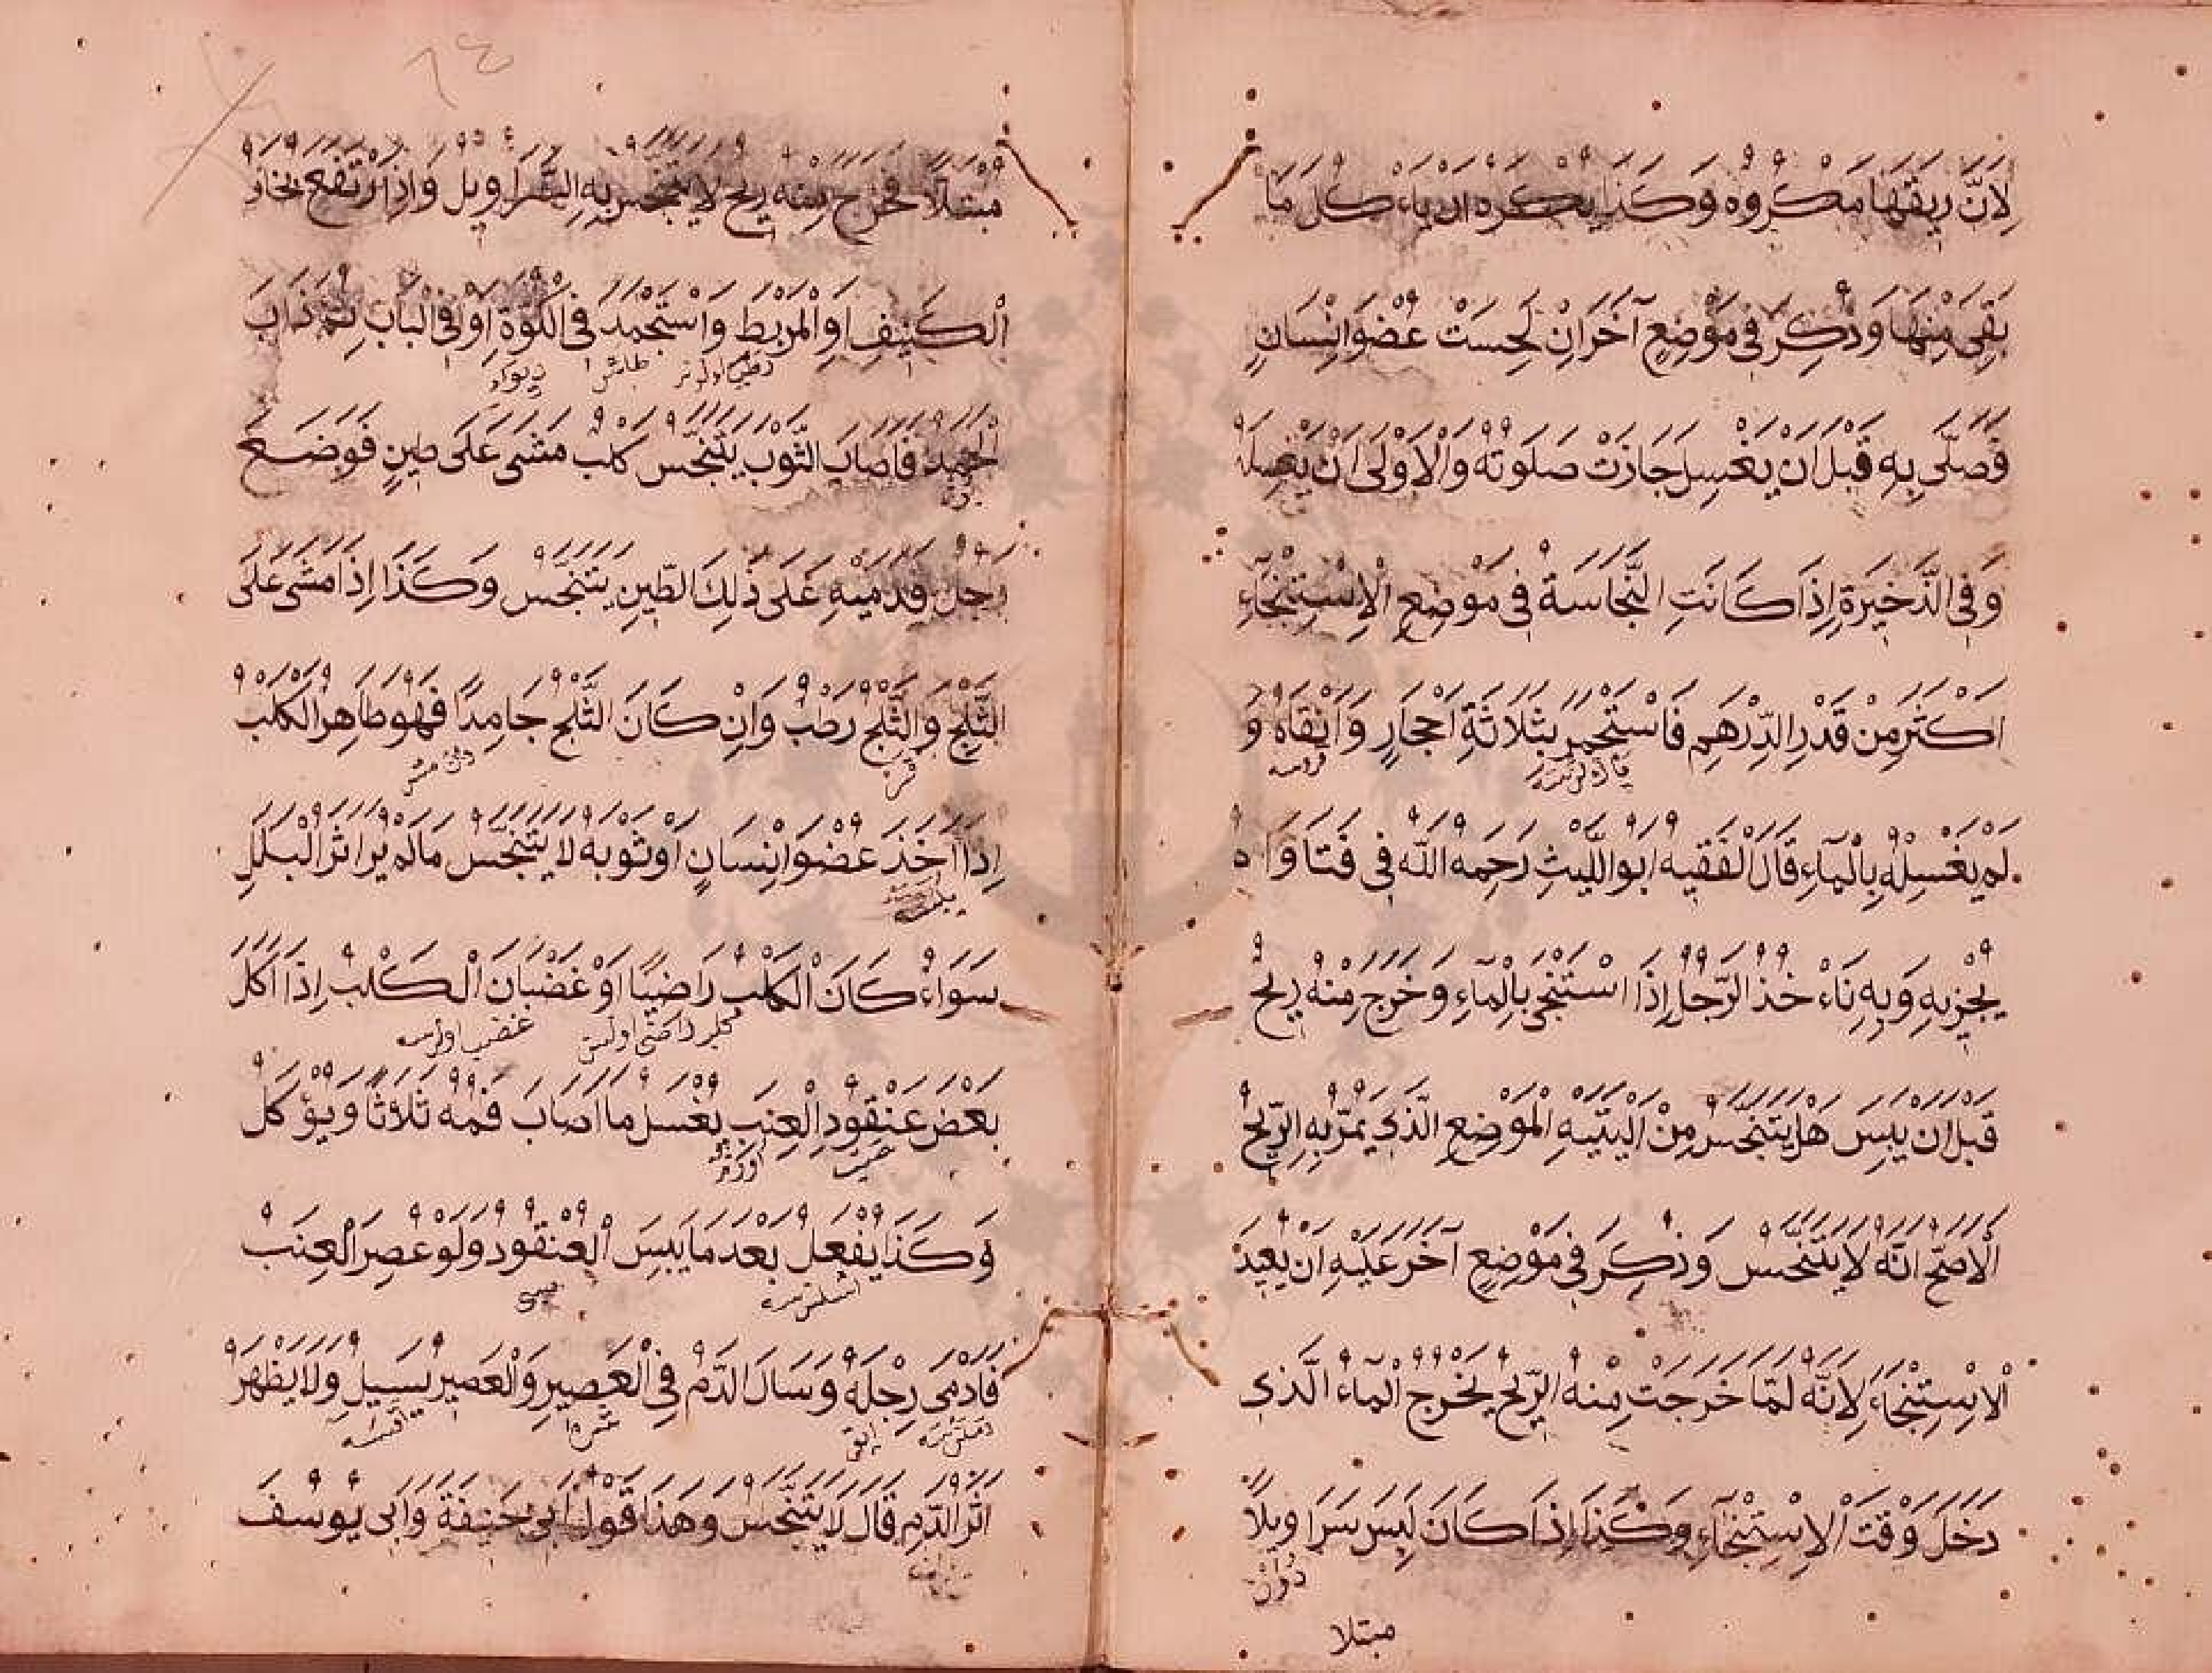 لِاَنَّ رِيقَهَا مَكْرُوهٌ وَكَذَا يُكْرَهُ اَنْ يَاءْكُلَ مَا
بَقِيَ مِنْهَا وَذُكِرَ فِي مَوْضِعٍ آخَرَ اِنْ لَحِسَتْ عُضْوَ اِنْسَانٍ
فَصَلَّى بِهِ قَبْلَ اَنْ يَغْسِلَ جَازَتْ صَلَوتُهُ وَالْاَوْلَى اَنْ يَغْسِلَهُ
وَفِي الذَّخِيرَةِ اِذَا كَانَتِ النَّجَاسَةُ فِي مَوْضِعِ الْاِسْتِنْجَآءِ
اَكْثَرَ مِنْ قَدْرِ الدِّرْهَمِ فَاسْتَجْمَرَ بِثَلَاثَةِ اَحْجَارٍ وَاَنْقَاهُ وَ
لَمْ يَغْسِلْهُ بِالْمَآءِ قَالَ الْفَقِيهُ اَبُو اللَّيْثِ رَحِمَهُ اللّٰهُ فِي فَتَاوَاهُ
يُجْزِيهِ وَبِهِ نَاءْخُذُ الرَّجُلُ اِذَا اسْتَنْجَى بِالْمَآءِ وَخَرَجَ مِنْهُ رِيحٌ
قَبْلَ اَنْ يَيْبِسَ هَلْ يَتَنَجَّسُ مِنْ اَلْيَتَيْهِ الْمَوْضِعِ الَّذِي يَمُرُّ بِهِ الرِّيحُ
الْاَصَحُّ اَنَّهُ لَا يَتَنَجَّسُ وَذُكِرَ فِي مَوْضِعٍ آخَرَ عَلَيْهِ اَنْ يُعِيدَ
الْاِسْتِنْجَاءَ لِاَنَّهُ لَمَّا خَرَجَتْ مِنْهُ الرِّيحُ يَخْرُجُ الْمَآءُ الَّذِي
دَخَلَ وَقْتَ الْاِسْتِنْجَآءِ وَكَذَا اِذَا كَانَ لَبِسَ سَرَاوِيلًا
مبتلا
٦٤
مُبْتَلًّا فَخَرَجَ مِنْهُ رِيحٌ لَا يَتَنَجَّسُ بِهِ السَّرَاوِيلُ وَاِذَا ارْتَفَعَ بُخَارُ
الْكَنِيفِ اَوِ الْمَرْبِطِ وَاسْتَجْمَدَ فِي الْكُوَّةِ اَوْ فِي الْبَابِ ثُمَّ ذَابَ
الْجَمِيدُ فَاَصَابَ الثَّوْبَ يَتَنَجَّسُ كَلْبٌ مَشَى عَلَى طِينٍ فَوَضَعَ
رَجُلٌ قَدَمَيْهِ عَلَى ذٰلِكَ الطِّينِ يَتَنَجَّسُ وَكَذَا اِذَا مَشَى عَلَى
الثَّلْجِ وَالثَّلْجُ رَطْبٌ وَاِنْ كَانَ الثَّلْجُ جَامِدًا فَهُوَ طَاهِرٌ الْكَلْبُ
اِذَا اَخَذَ عُضْوَ اِنْسَانٍ اَوْ ثَوْبَهُ لَا يَتَنَجَّسُ مَا لَمْ يُرَ اَثَرُ الْبَلَلِ
سَوَاءٌ كَانَ الْكَلْبُ رَاضِيًا اَوْ غَضْبَانَ الْكَلْبُ اِذَا اَكَلَ
بَعْضَ عُنْقُودِ الْعِنَبِ يُغْسَلُ مَا اَصَابَ فَمُهُ ثَلَاثًا وَيُؤْكَلُ
وَكَذَا يُفْعَلُ بَعْدَ مَا يَبِسَ الْعُنْقُودُ وَلَوْ عَصَرَ الْعِنَبَ
فَاَدْمَى رِجْلَهُ وَسَالَ الدَّمُ فِي الْعَصِيرِ وَالْعَصِيرُ يَسِيلُ وَلَا يَظْهَرُ
اَثَرُ الدَّمِ قَالَ لَا يَتَنَجَّسُ وَهَذَا قَوْلُ اَبِي حَنِيفَةَ وَاَبِي يُوسُفَ